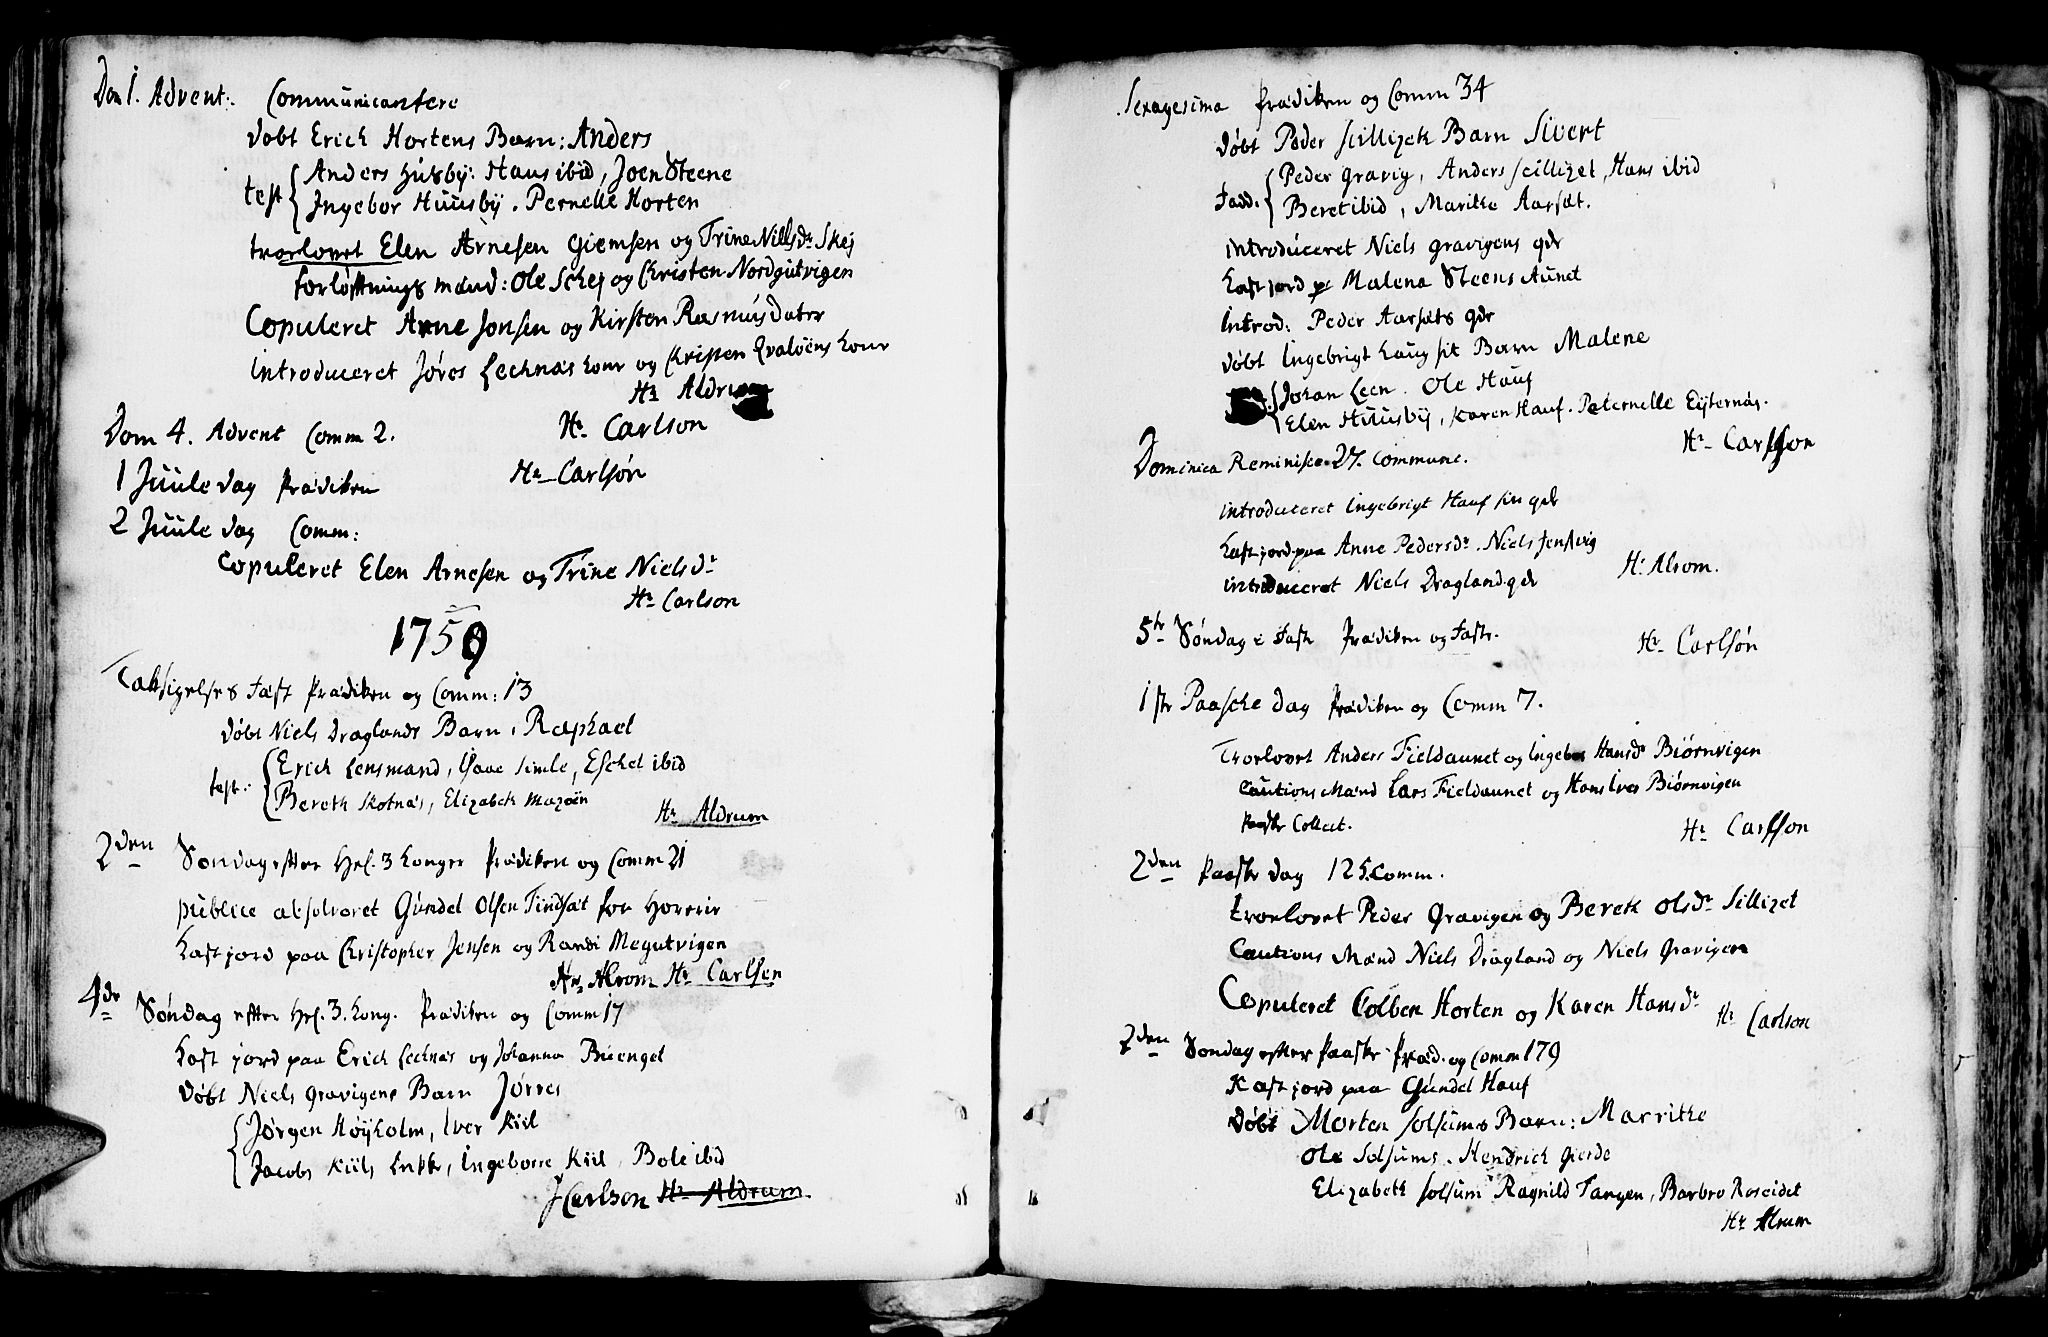 Dom 1. Advent: Communicantere
døbt Erich Hortens Barn: Anders
test { Anders Husby: Hans ibid, Joen Steene
Ingebor Huusby. Pernelle Horten
trorlovet Elen Arnesen Giemsen og Trine Nills dr Skej
forløftnings mænd: Ole Schej og Christen Nordgutvigen
Copuleret Arne Jonsen og Kirsten Rasmus Dater
introduceret Jøres Lechnæs konr og Christen Qvaløens konr
Hr Aldrum
Dom 4. Advent Comm 2. Hr. Carlson
1 Juule dag Prædiken Hr Carlsøn
2 Juule dag Comm:
Copuleret Elen Arnesen og Trine Niels dr
Hr Carlson
1759
Taksigelses Fæst Prædiken og Comm: 13
døbt Niels Draglands Barn, Raphael
test: { Erich Lensmand, Isaac Simle, Eschel ibid
Bereth Skotnæs, Elizabeth Mazøen
Hr Aldrum
2den Søndag efter Hel. 3 Konger Prædiken og Comm 21
publice absolveret Gundel Olsen Tindsæt for Horerir
Kast jord paa Christopher Jensen og Randi Megutvigen
Hr. Alrom Hr Carlsen
4de Søndag efter Hel. 3. Kong. Prædiken og Comm 17
Kast jord paa Erich Lechnæs og Johanna Buengel
døbt Niels Gravigens Barn Jørres
{ Jørgen Høyholm, Iver Kiil
Jacobs Kiils Enke, Ingeborre Kiil, Bole ibid
Carlson Hr Aldrum
Sexagesima Prædiken og Comm 34
døbt Peder Scillizeth Barn Sivert
Fadd. { Peder Gravig, Anders Scillizet, Hans ibid
Beret ibid, Marithe Aarsæt.
introduceret Niels Gravigens qdr
Kast jord pr Malena Steens Aunet
Introd: Peder Aarsæts qdr
døbt Ingebrigt Haug sit Barn Malene
{ Johan Leen. Ole Hauf
Elen Huusby, Karen Hauf. Peternelle Eyternæs.
Hr Carlsøn
Dominica Reminisce 27. Commune.
introduceret Ingebrigt Hauf sin qdr
Kast jord paa Anne Peders dr. Niels Jensvig
introduceret Niels Dragland. qdr Hr Alrom.
5te Søndag i Faste Prædiken og Faste. Hr Carlsøn
1ste Paasche dag Prædiken og Comm 7.
Trorlovet Anders Fieldaunet og Ingebor Hans dr Biørnvigen
Cautions Mænd Lars Fieldaunet og Hans Iver Biørnvigen
Paaske Collect. Hr Carlson
2den Paaske dag 125. Comm.
trorlovet Peder Gravigen og Bereth Ols dr Sillizet
Cautions Mænd Niels Dragland og Niels Gravigen
Copuleret Colben Horten og Karen Hans dr
Hr Carlson
2den Søndag efter Paaske Præd. og Comm 179
Kast jord paa Gundel Hauf
døbt Morten Solsums Barn: Marrithe
Ole Solsums. Hendrich Gierde
Elizabeth Solsum Ragnild Tangen, Barbro Roseidet
Hr Alrum